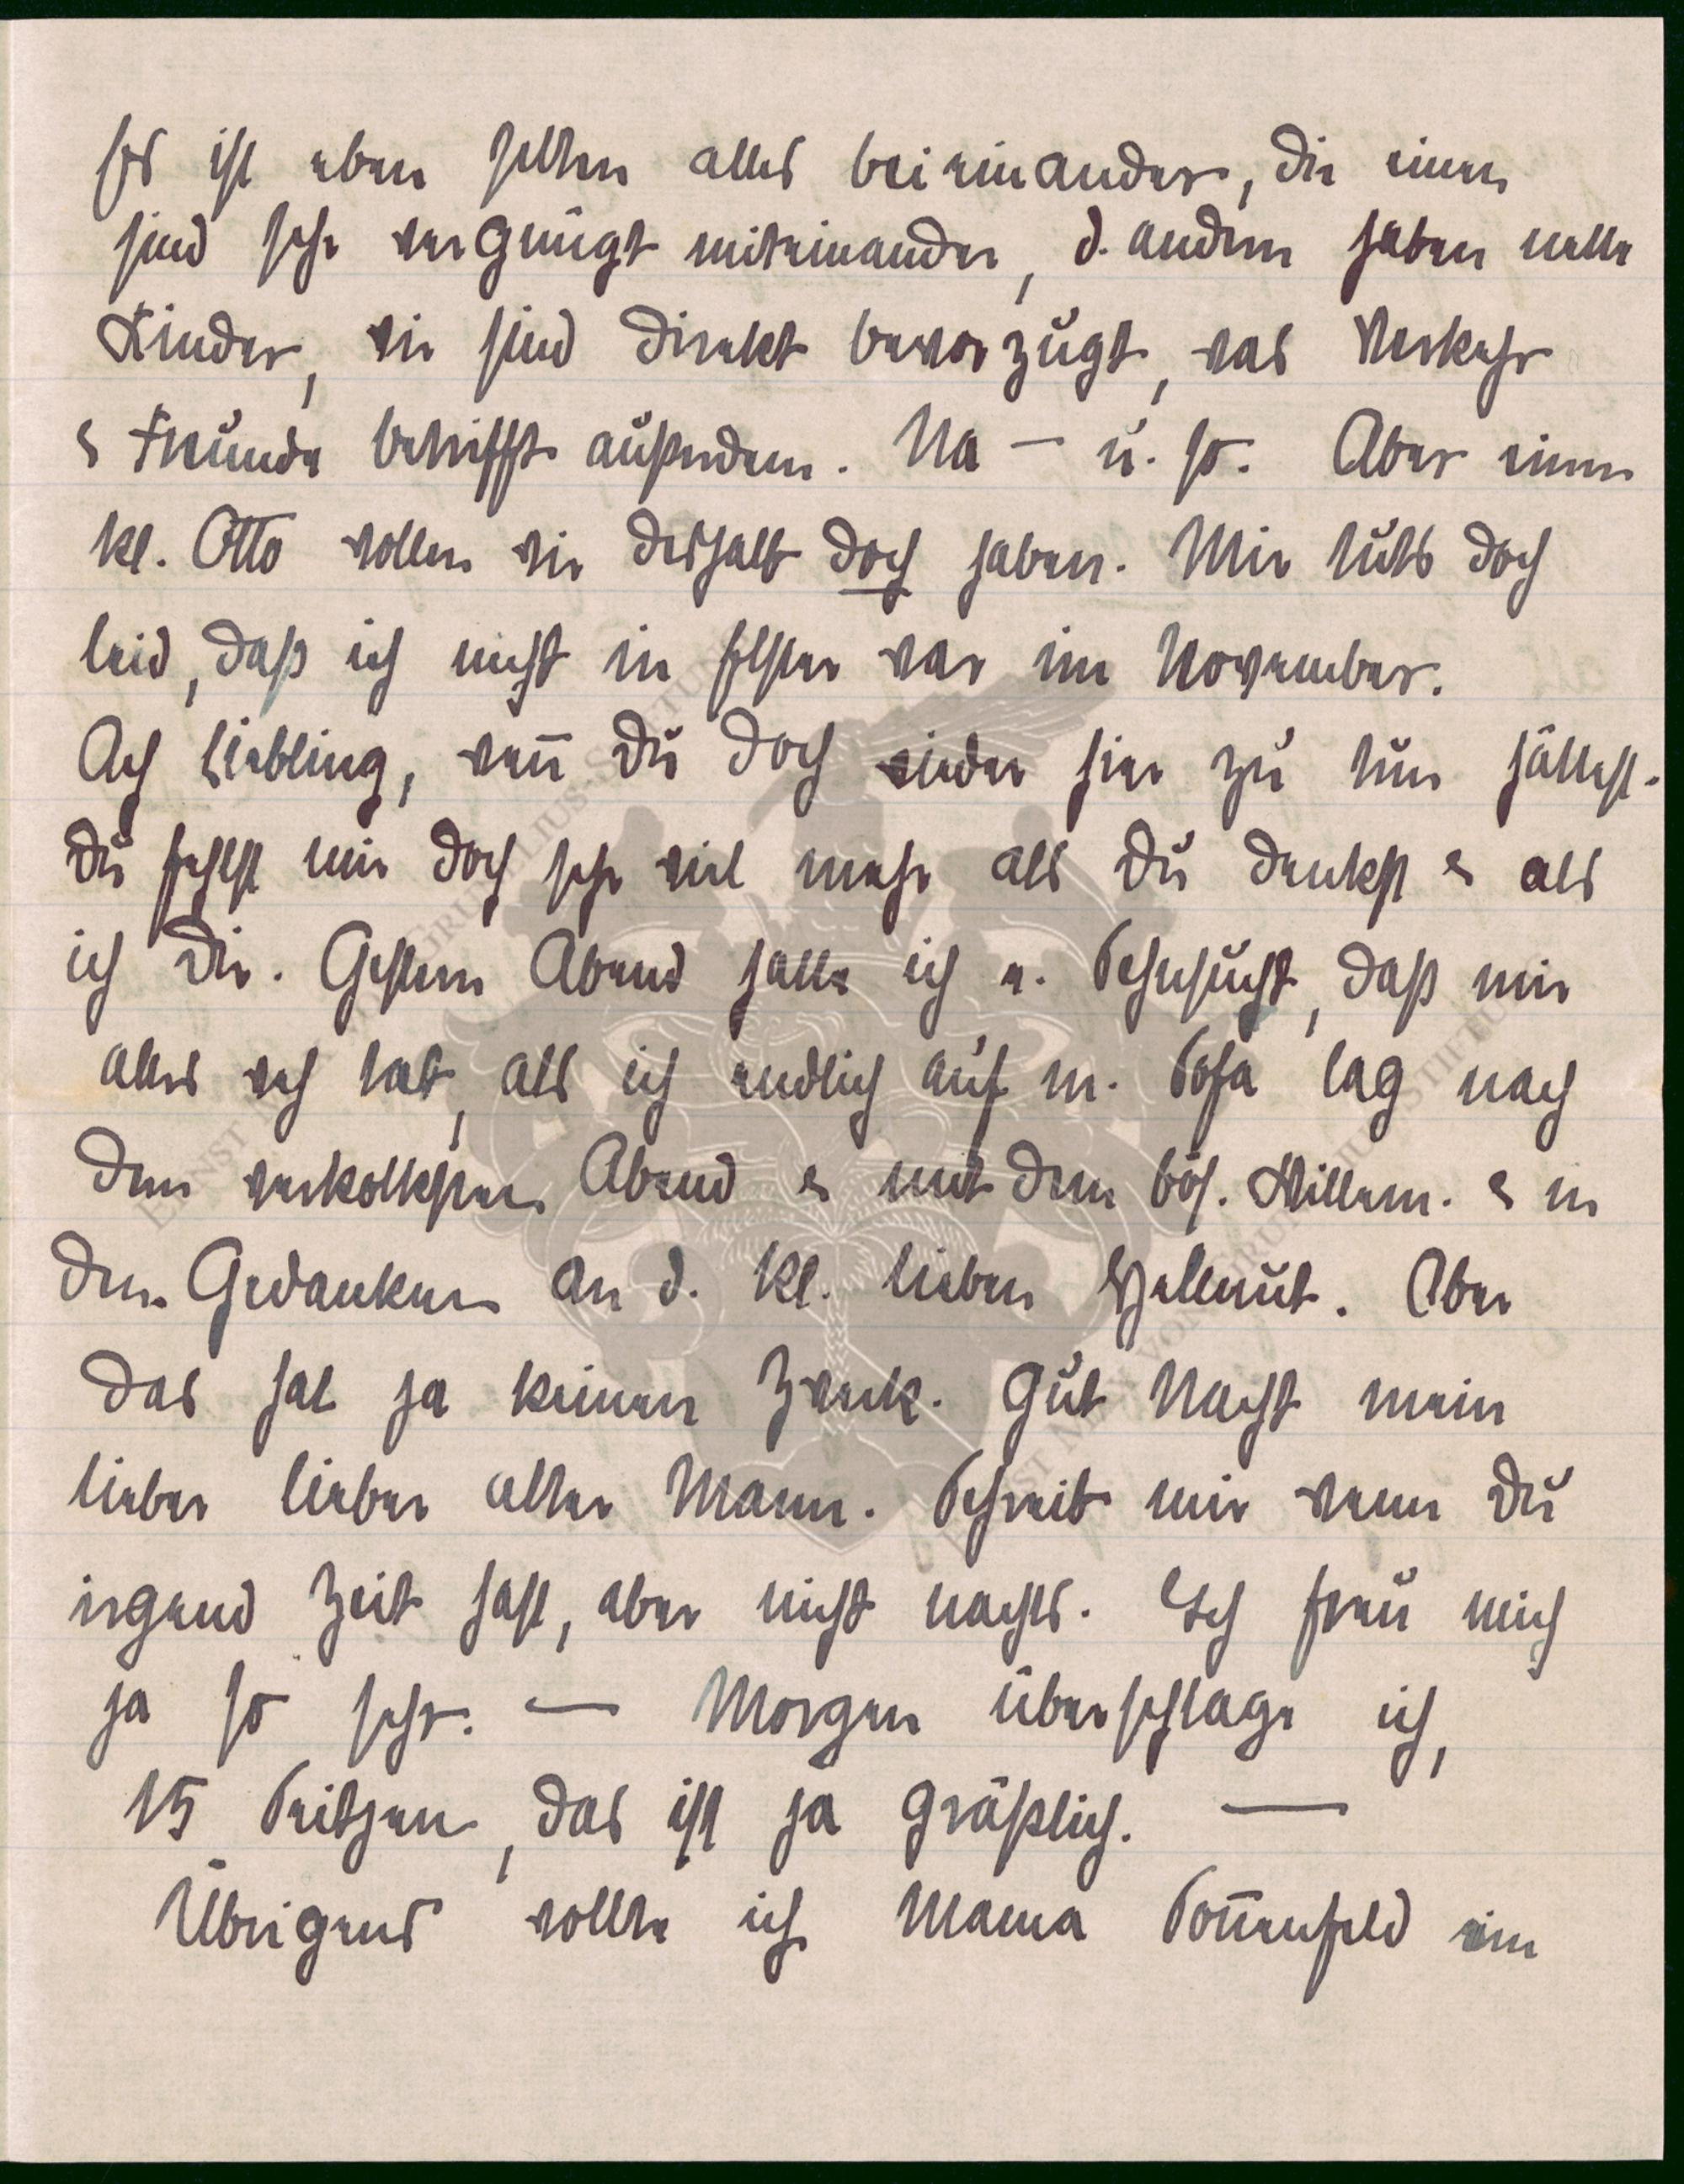 Es ist eben selten alles beieinander, die einen
sind sehr vergnügt miteinander, d. andern haben nette
Kinder, wir sind direkt bevorzugt, was Verkehr
& Freunde betrifft außerdem. Na — u. so. Aber einen
kl. Otto wollen wir deshalb doch haben. Mir tuts doch
leid, daß ich nicht in Elster war im November.
Ach Liebling, wen̄ Du doch wieder hier zu tun hättest.
Du fehlst mir doch sehr viel mehr als Du denkst & als
ich Dir. Gestern Abend hatte ich e. Sehnsucht, daß mir
alles weh tat, als ich endlich auf m. Sofa lag nach
dem verkorksten Abend & mit dem bös. Willem. & in
den Gedanken an d. kl. lieben Hellmut. Aber
das hat ja keinen Zweck. Gut Nacht mein
lieber lieber alter Mann. Schreib mir wenn Du
irgend Zeit hast, aber nicht nachts. Ich freu mich
ja so sehr. — Morgen überschlage ich,
15 Seitzen, das ist ja gräßlich. —
Übrigens wollte ich Mama Son̄enfeld ein